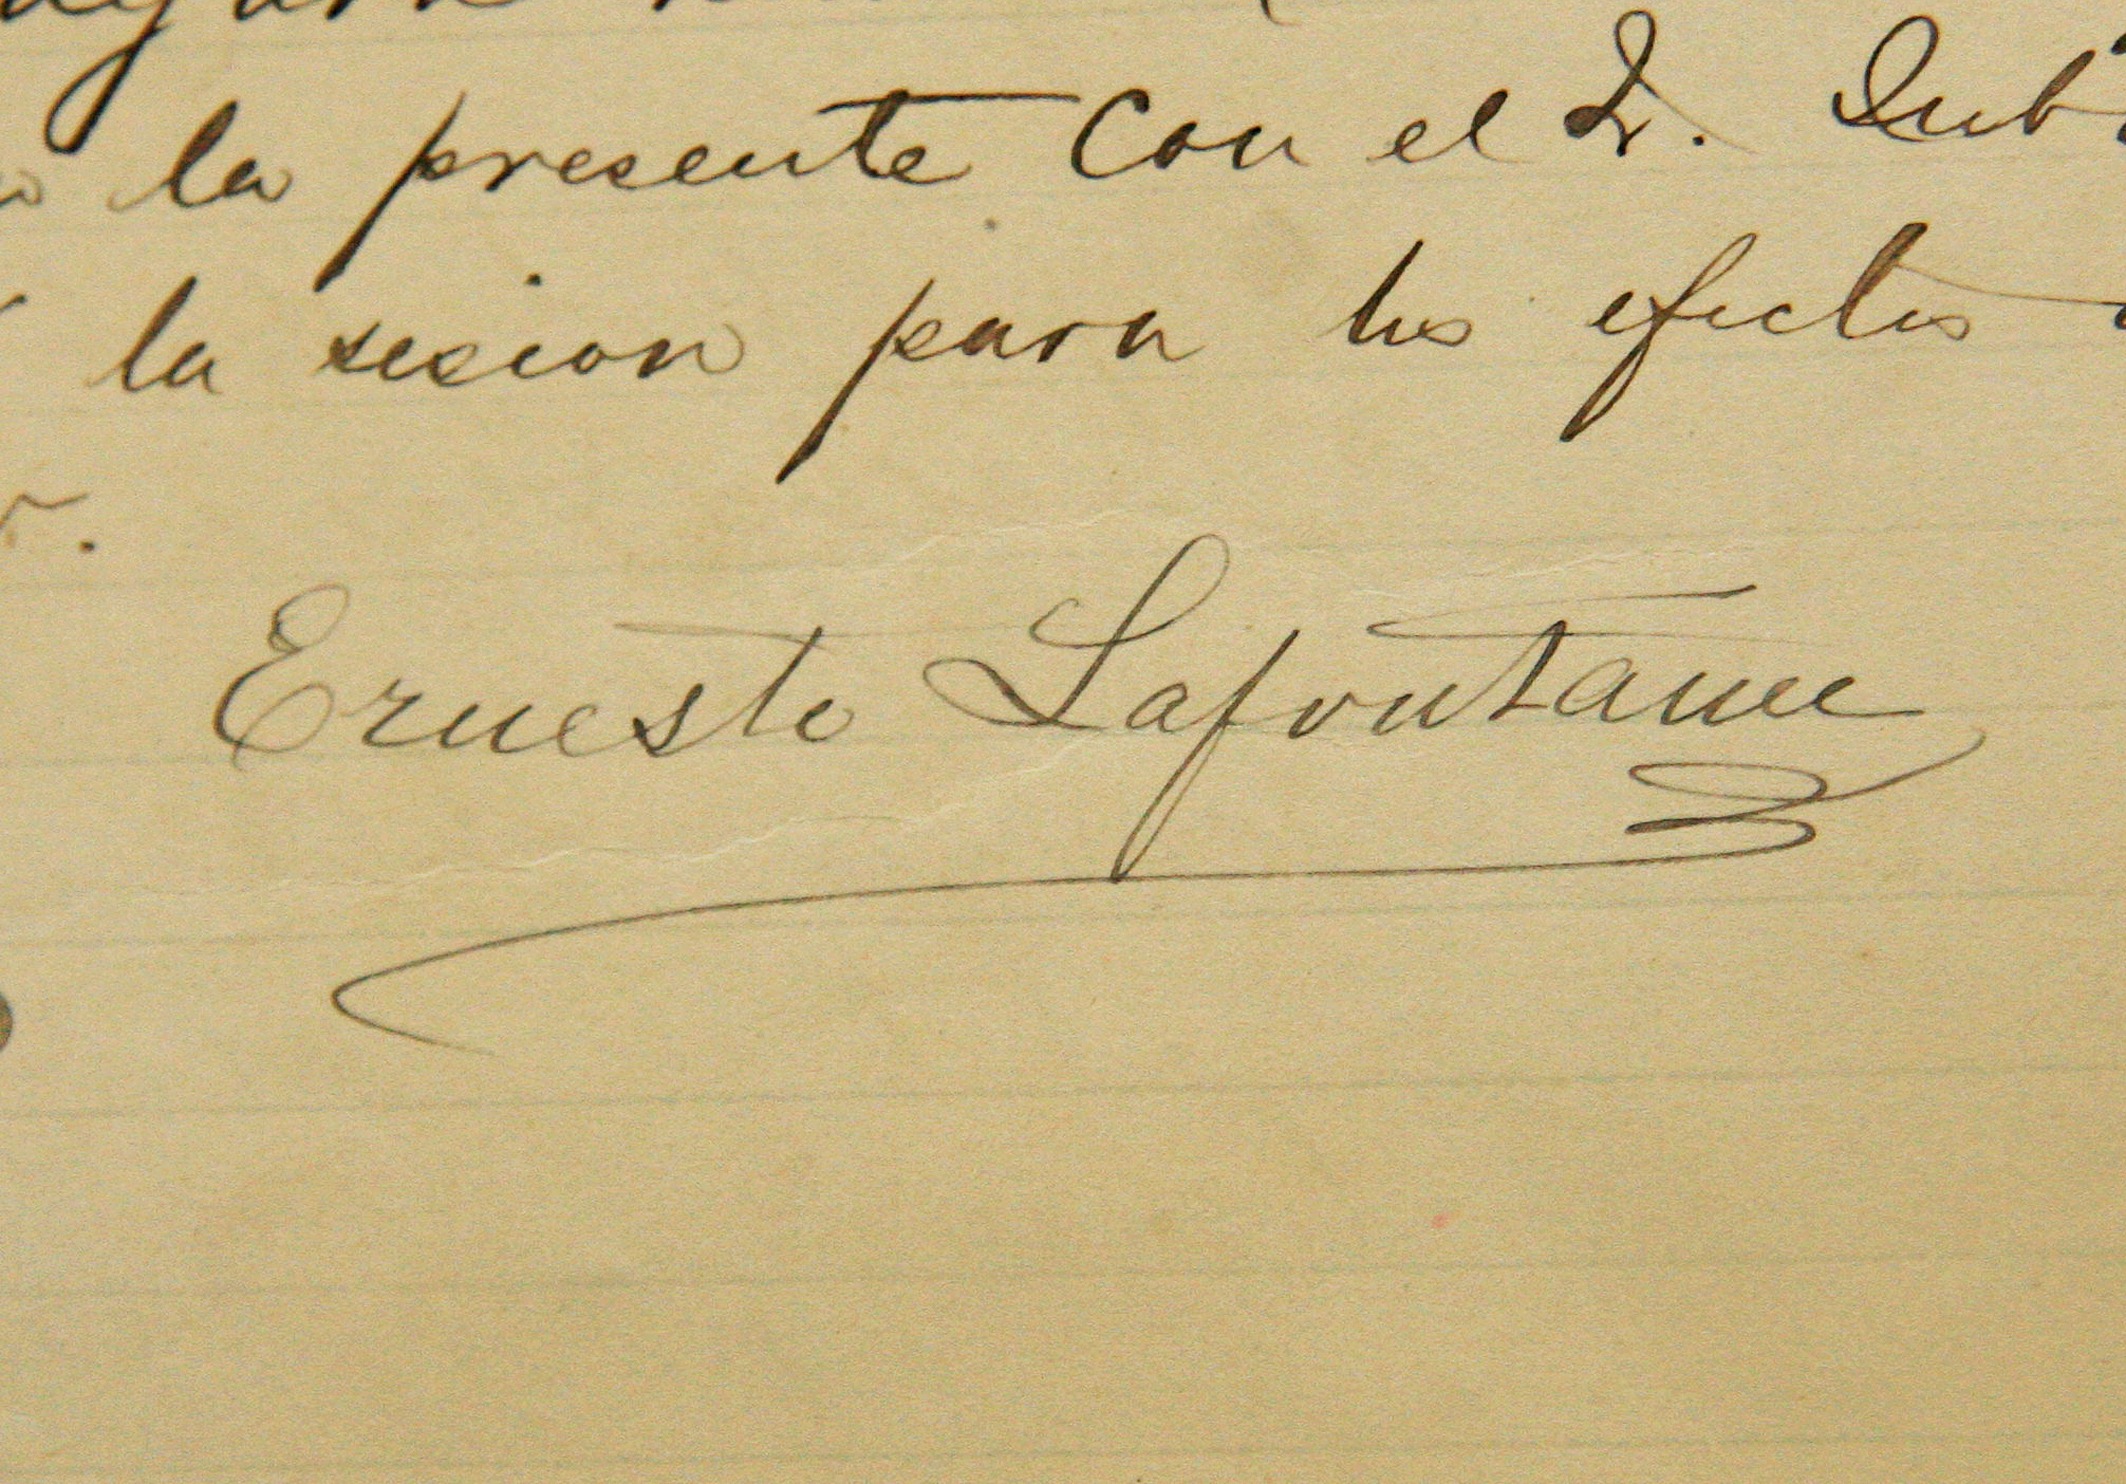 la presente Con el S. Sub
la sesion para los efectos
Ernesto Lafontaine